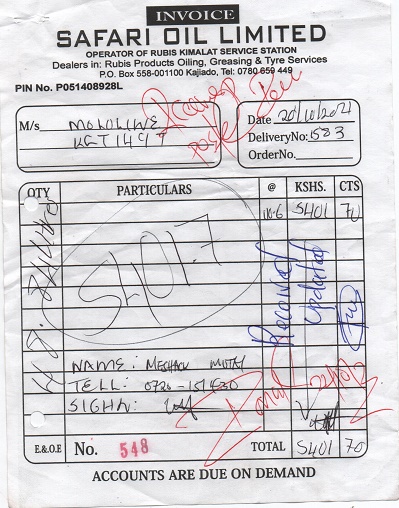 INVOICE
SAFARI OIL LIMITED
OPERATOR OF RUBIS KIMALAT SERVICE STATION
Dealers in: Rubis Products Oiling, Greasing & Tyre Services
P.O. Box 558-001100 Kajiado, Tel: 0780 659 449
PIN No. P051408928L
M/s MOLOLINE
KCT 149T
Date 20/10/2021
DeliveryNo: 1583
OrderNo.
QTY PARTICULARS @ KSHS. CTS
110.6 5401 70
5401.7
Account updated
NAME: MECHACK
TELL: 0726-
SIGHN:
E.&O.E No. 548 TOTAL 5401 70
ACCOUNTS ARE DUE ON DEMAND